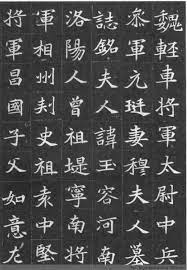 魏軽車將軍太尉中兵
叅軍元珽妻穆夫人墓
誌銘夫人諱玉容河南
洛陽人曾祖堤寧南將
軍相州刾史祖袁中堅
將軍昌國子父如意左